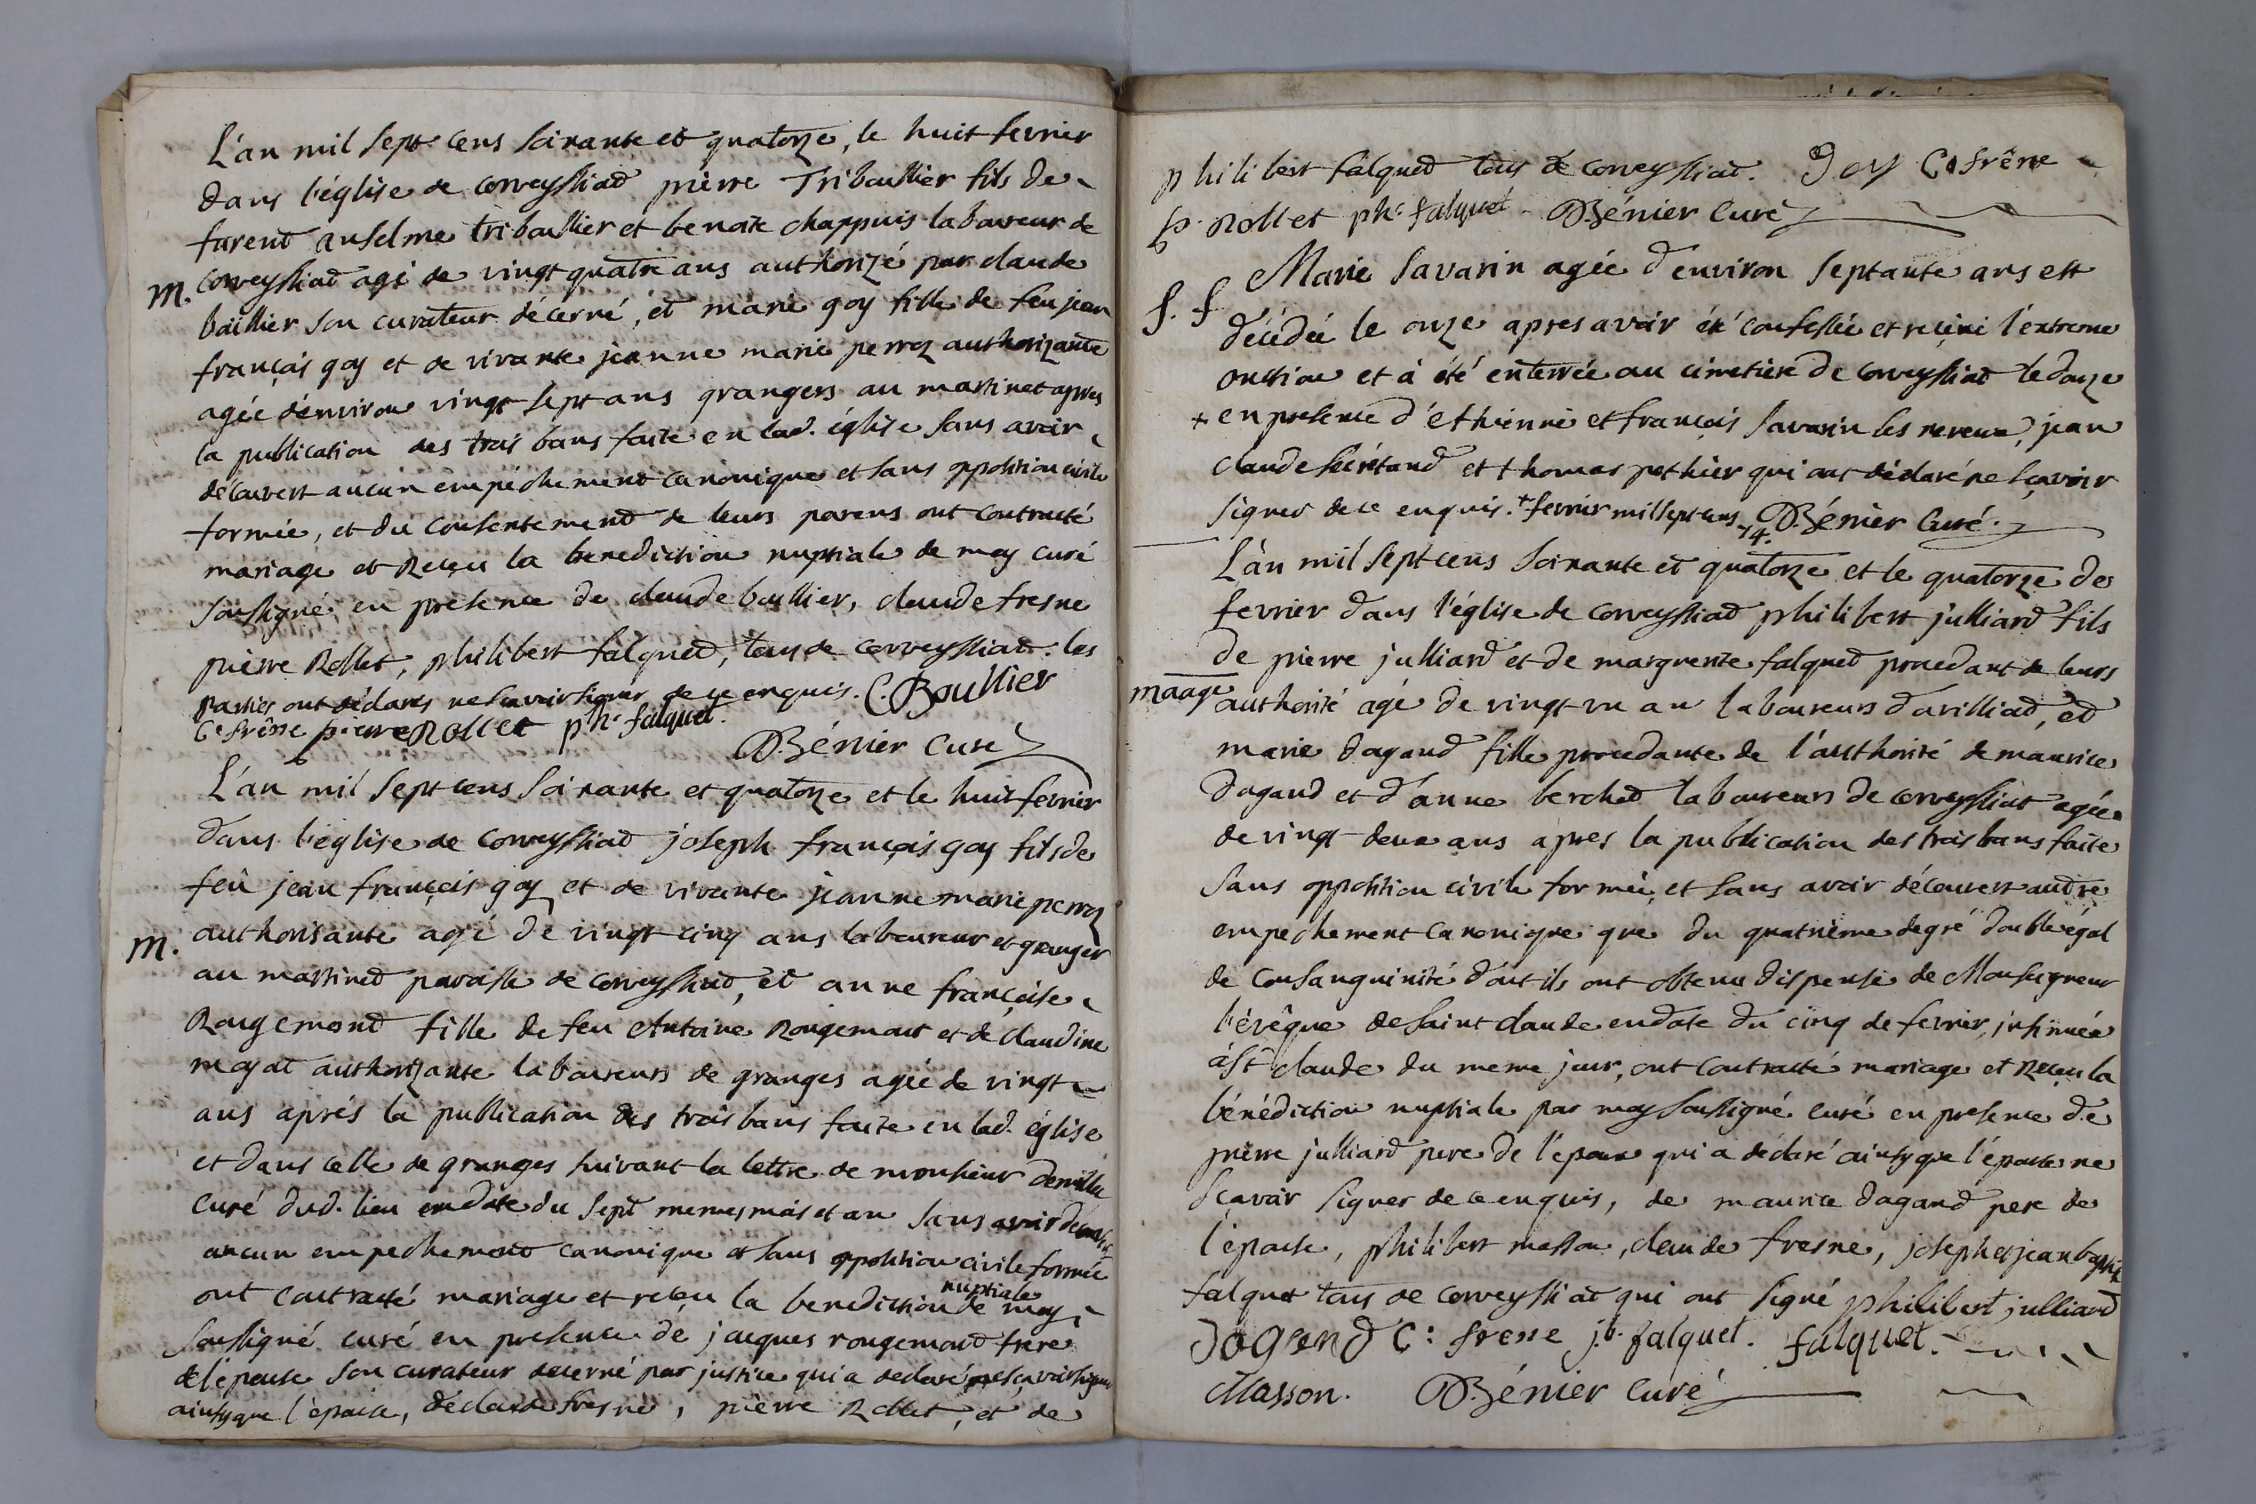 L'an mil sept cens soixante et quatorze, le huit fevrier
dans l'église de corveyssiad pierre Triboullier fils de
furent anselme triboullier et benoite chappuis laboureur de
m. corveyssiad agé de vingt quatre ans authorizé par claude
boullier son curateur décerné, et marie goy fille de feu jean
françois goy et de vivante jeanne marie perroz authorizante
agée d'environ vingt sept ans grangers au martinet apres
la publication des trois bans faite en lad. église sans avoir
découvert aucun empéchement canonique et sans opposition civile
formée, et du consentement de leurs parens ont contracté
mariage et Reçeu la benediction nuptiale de moy curé
soussigné en presence de claude boullier, claude fresne
pierre Rollet, philibert falqued, tous de corveyssiad. les
parties ont déclarés ne sçavoir signer de ce enquis. C. Boullier
C. frêsne pierre Rollet ph. falquet.
D. Bénier Curé
L'an mil sept cens soixante et quatorze et le huit fevrier
dans l'église de corveyssiad joseph françois goy fils de
feû jean françois goy et de vivante jeanne marie perroz
m. authorisante agé de vingt cinq ans laboureur et granger
au martined paroisse de corveyssiad, et anne françoise
Rougemond fille de feu Antoine Rougemont et de claudine
moyat authorizante laboureurs de granges agée de vingt
ans aprés la publication des trois bans faite en lad. église
et dans celle de granges suivant la lettre de monsieur
curé dud. lieu en date du sept memes mois et an sans avoir découvert
aucun empechement canonique et sans opposition civile formée
nuptiale
ont contracté mariage et reçeu la benediction de moy
soussigné curé en presence de jacques rougemond frere
de l'épouse son curateur decerné par justice qui a declaré ne sçavoir signer
ainsy que l'épouse, de claude fresne, pierre Rollet, et de
philibert falqued tous de corveyssiad. Goy C. frêne
p. Rollet ph. falquet. D. Bénier Curé
f. f. Marie Savarin agée d'environ septante ans est
décédée le onze apres avoir été confessée et reçûe l'extreme
onction et à été enterrée au cimetiere de corveyssiad le douze
+ en presence d'ethienne et françois savarin ses neveux, jean
claude secrétand et thomas pethier qui ont déclaré ne sçavoir
signer de ce enquis. + fevrier mil sept cens 74. D. Bénier Curé.
L'àn mil sept cens soixante et quatorze et le quatorze de
fevrier dans l'église de corveyssiad philibert julliard fils
de pierre julliard et de margueritte falqued procedant de leurs
maage authorité agé de vingt un an laboureurs d'arilliad, et
marie dagand fille procedante de l'aucthorité de maurice
dagand et d'anne berched laboureurs de corveyssiat agée
de vingt deux ans apres la publication des trois bans faite
sans opposition civile formée, et sans avoir découvert autre
empechement canonique que du quatrième degré double égal
de consanguinité dont ils ont obtenu dispense de Monseigneur
l'évêque de Saint claude en date du cinq de fevrier, insinuée
à St claude du meme jour, ont contracté mariage et Reçeu la
bénédiction nuptiale par moy soussigné curé en presence de
pierre julliard pere de l'epoux qui a déclaré ainsy que l'épouse ne
sçavoir signer de ce enquis, de maurice dagand pere de
l'epouse, philibert masson, claude fresne, joseph et jean baptiste
falquet tous de corveyssiad qui ont signé philibert julliard
Dagand C: fresne j.b. falquet. falquet.
Masson. D. Bénier Curé